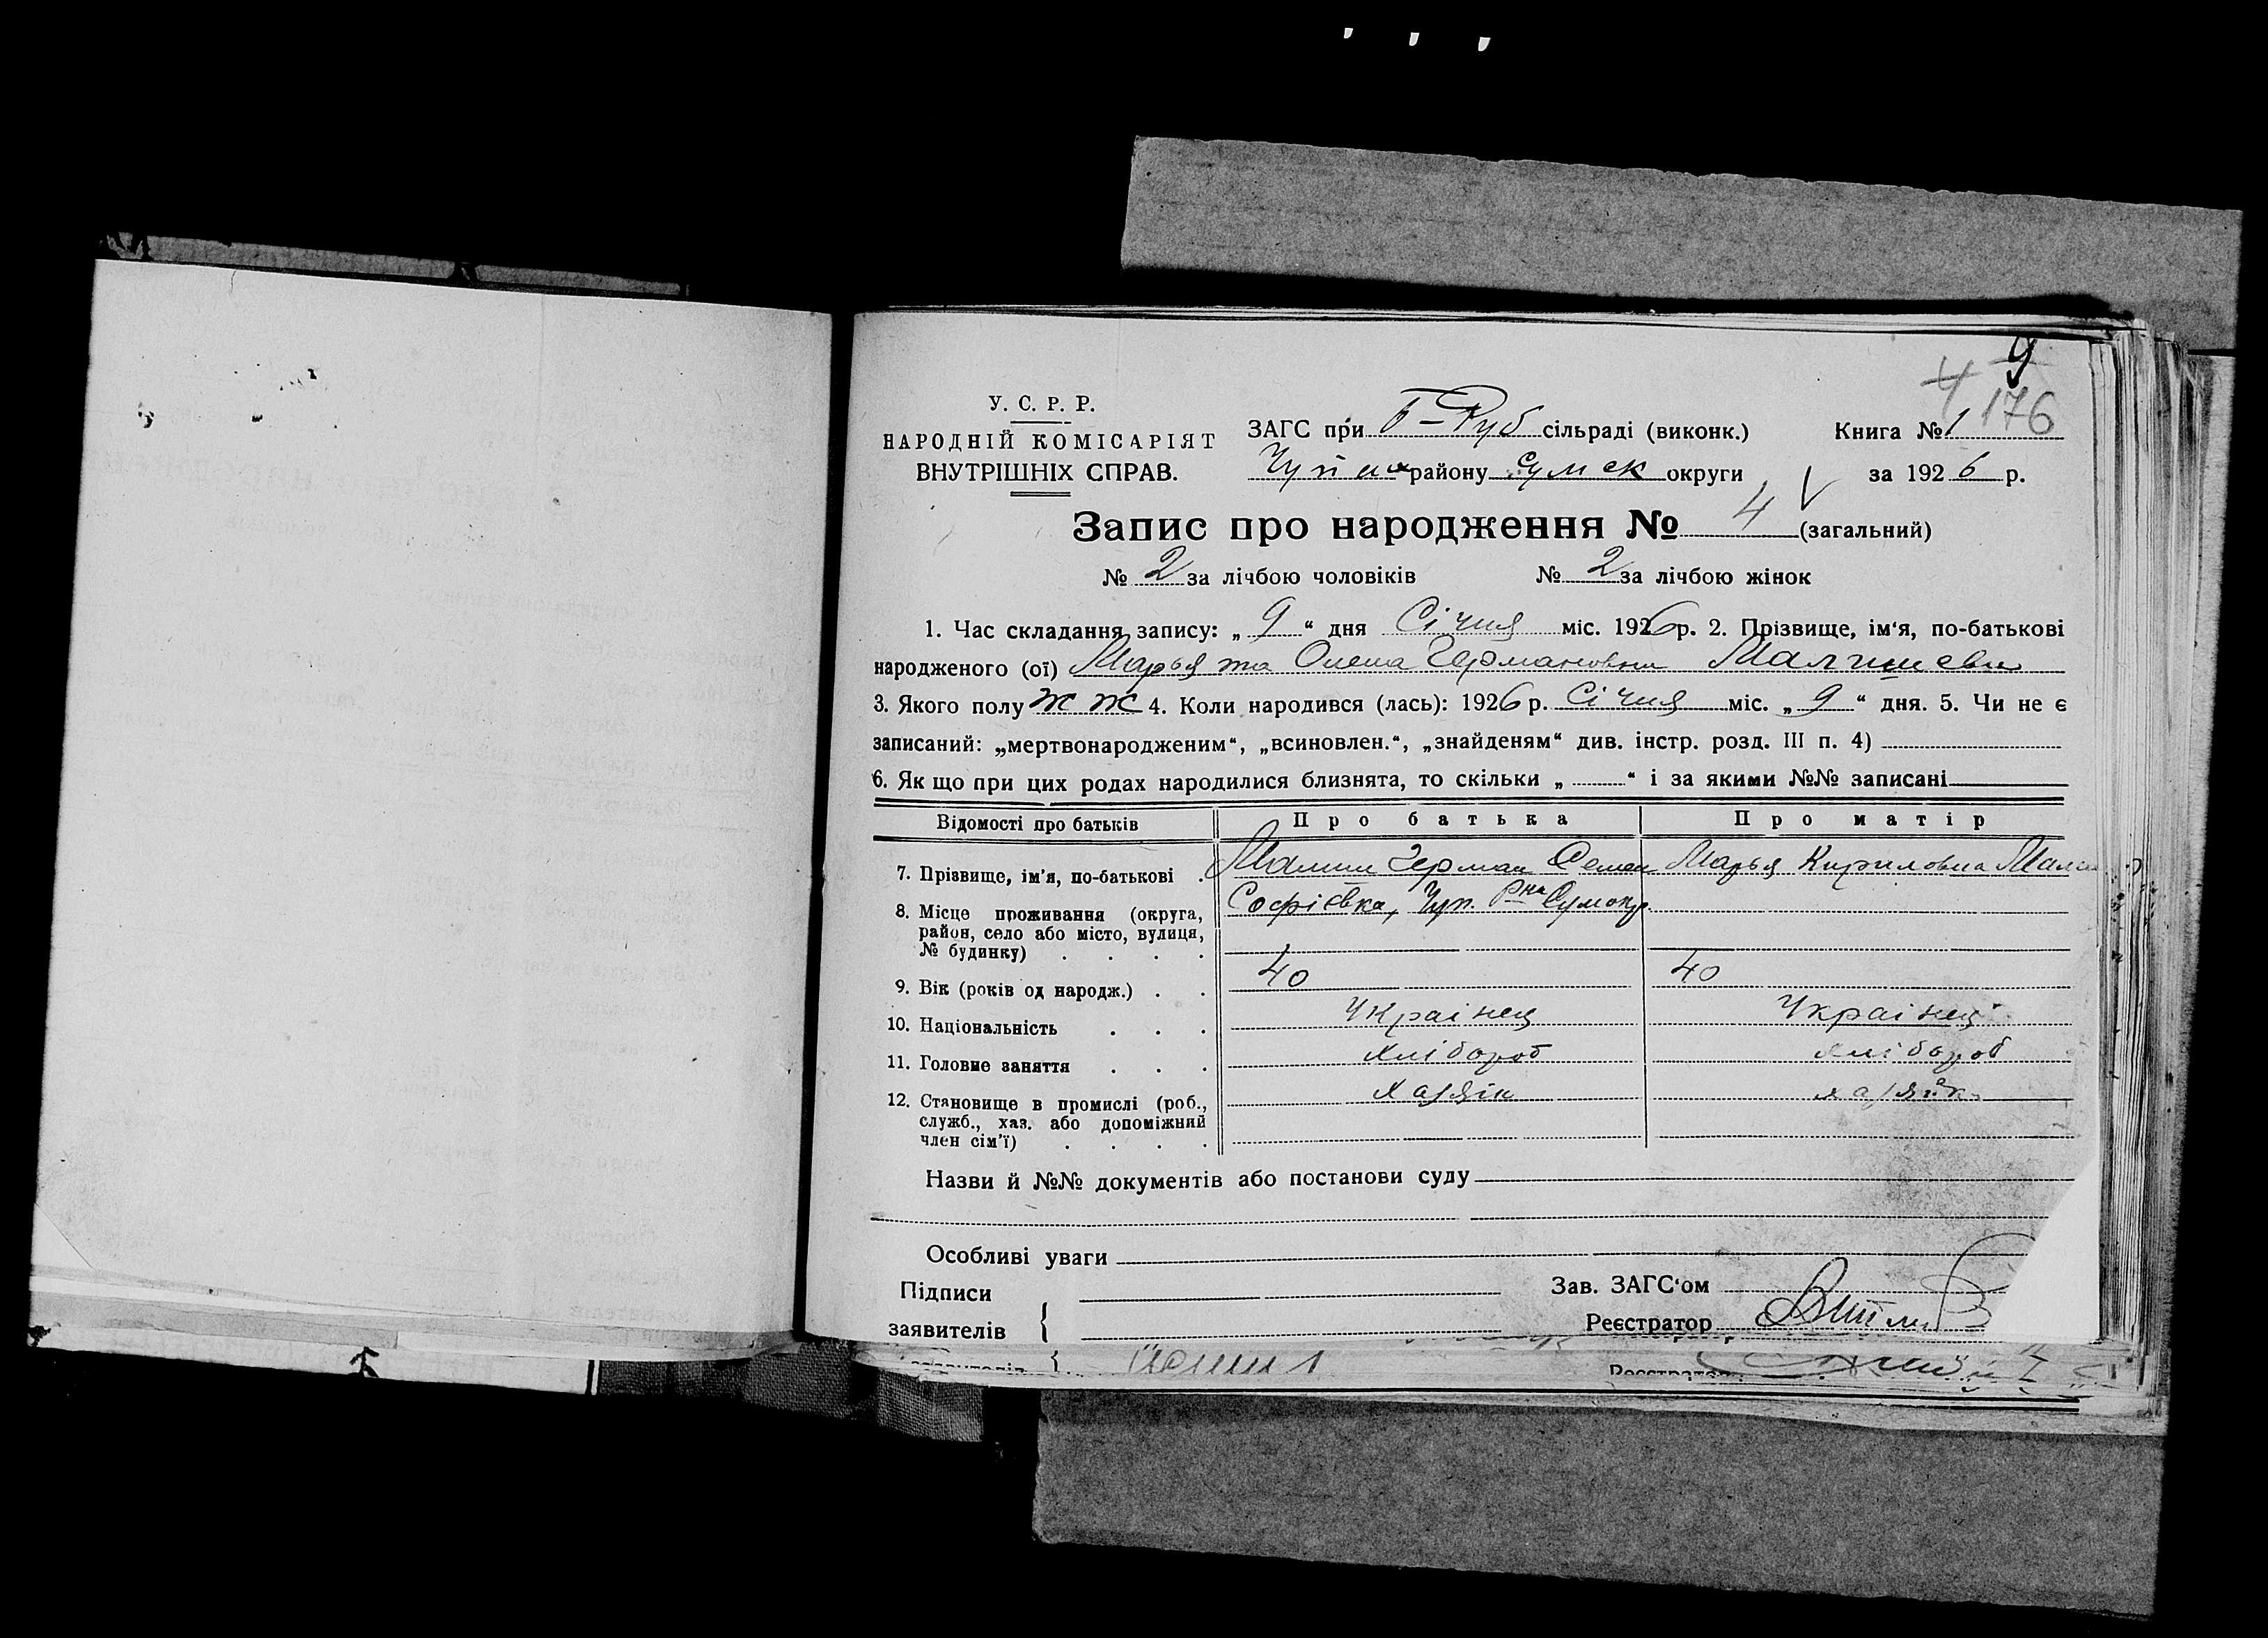 4 9
176
У. С. Р. Р.
НАРОДНІЙ КОМІСАРІЯТ
ВНУТРІШНІХ СПРАВ.
ЗАГС при Б-Руб сільраді (виконк.) Книга № 1
району Сумск округи за 1926 р.
Запис про народження № 4 (загальний)
№ 2 за лічбою чоловіків № 2 за лічбою жінок
1. Час складання запису: „ 9 “ дня Січня міс. 1926 р. 2. Прізвище, ім‘я, по-батькові
народженого (ої) Марья та Олена Германовни
3. Якого полу Ж Ж 4. Коли народився (лась): 1926 р. Січня міс. „ 9 “ дня. 5. Чи не є
записаний: „мертвонародженим“, „всиновлен.“, „знайденям“ див. інстр. розд. III п. 4)
6. Як що при цих родах народилися близнята, то скільки „ “ і за якими №№ записані
Відомості про батьків Про батька Про матір
7. Прізвище, ім'я, по-батькові . Герман Семен Марья Кириловна
8. Місце проживання (округа, Софієвка, Чуп. рна Сумокр.
район, село або місто, вулиця,
№ будинку) . . . .
9. Вік (років од народж.) . . 40 40
10. Національність . . . Украінец Украінец
11. Головне заняття . . . хлібороб хлібороб
12. Становище в промислі (роб., хазяін
служб., хаз. або допоміжний
член сім'ї) . . . .
Назви й №№ документів або постанови суду
Особливі уваги
Підписи Зав. ЗАГС‘ом
заявителів { Реєстратор
заявителів { Реєстратор